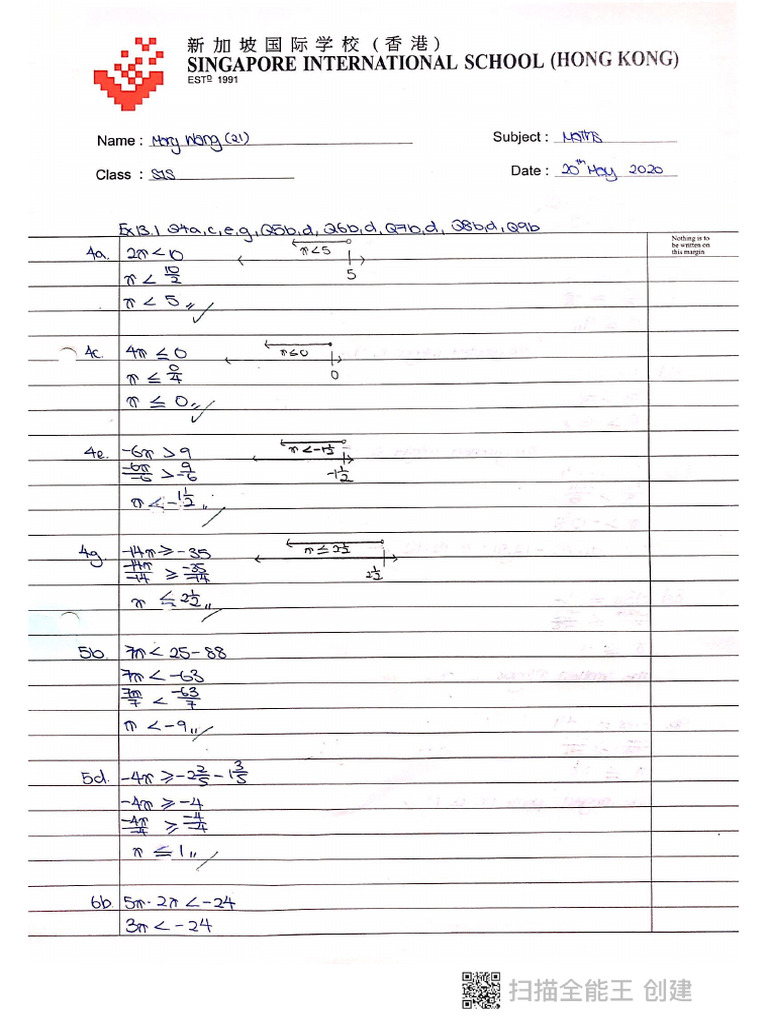 新加坡国际学校(香港)
SINGAPORE INTERNATIONAL SCHOOL (HONG KONG)
ESTD 1991
Name : Mary Wang (21) Subject : Maths
Class : S1S Date : 20th May 2020
Ex13.1 Q4a,c,e,g, Q5b,d, Q6b,d, Q7b,d, Q8b,d, Q9b
Nothing is to be written on this margin
4a. 2x < 10 x<5
x < 10/2 5
x < 5
4c. 4x ≤ 0 x≤0
x ≤ 0/4 0
x ≤ 0
4e. -6x > 9 x<-1 1/2
-6x/-6 > 9/-6 -1 1/2
x < -1 1/2
4g. -14x ≥ -35 x ≤ 2 1/2
-14x/-14 ≥ -35/-14 2 1/2
x ≤ 2 1/2
5b. 7x < 25 - 88
7x < -63
7x/7 < -63/7
x < -9
5d. -4x ≥ -2 2/5 - 1 3/5
-4x ≥ -4
-4x/-4 ≥ -4/-4
x ≤ 1
6b. 5x - 2x < -24
3x < -24
扫描全能王 创建